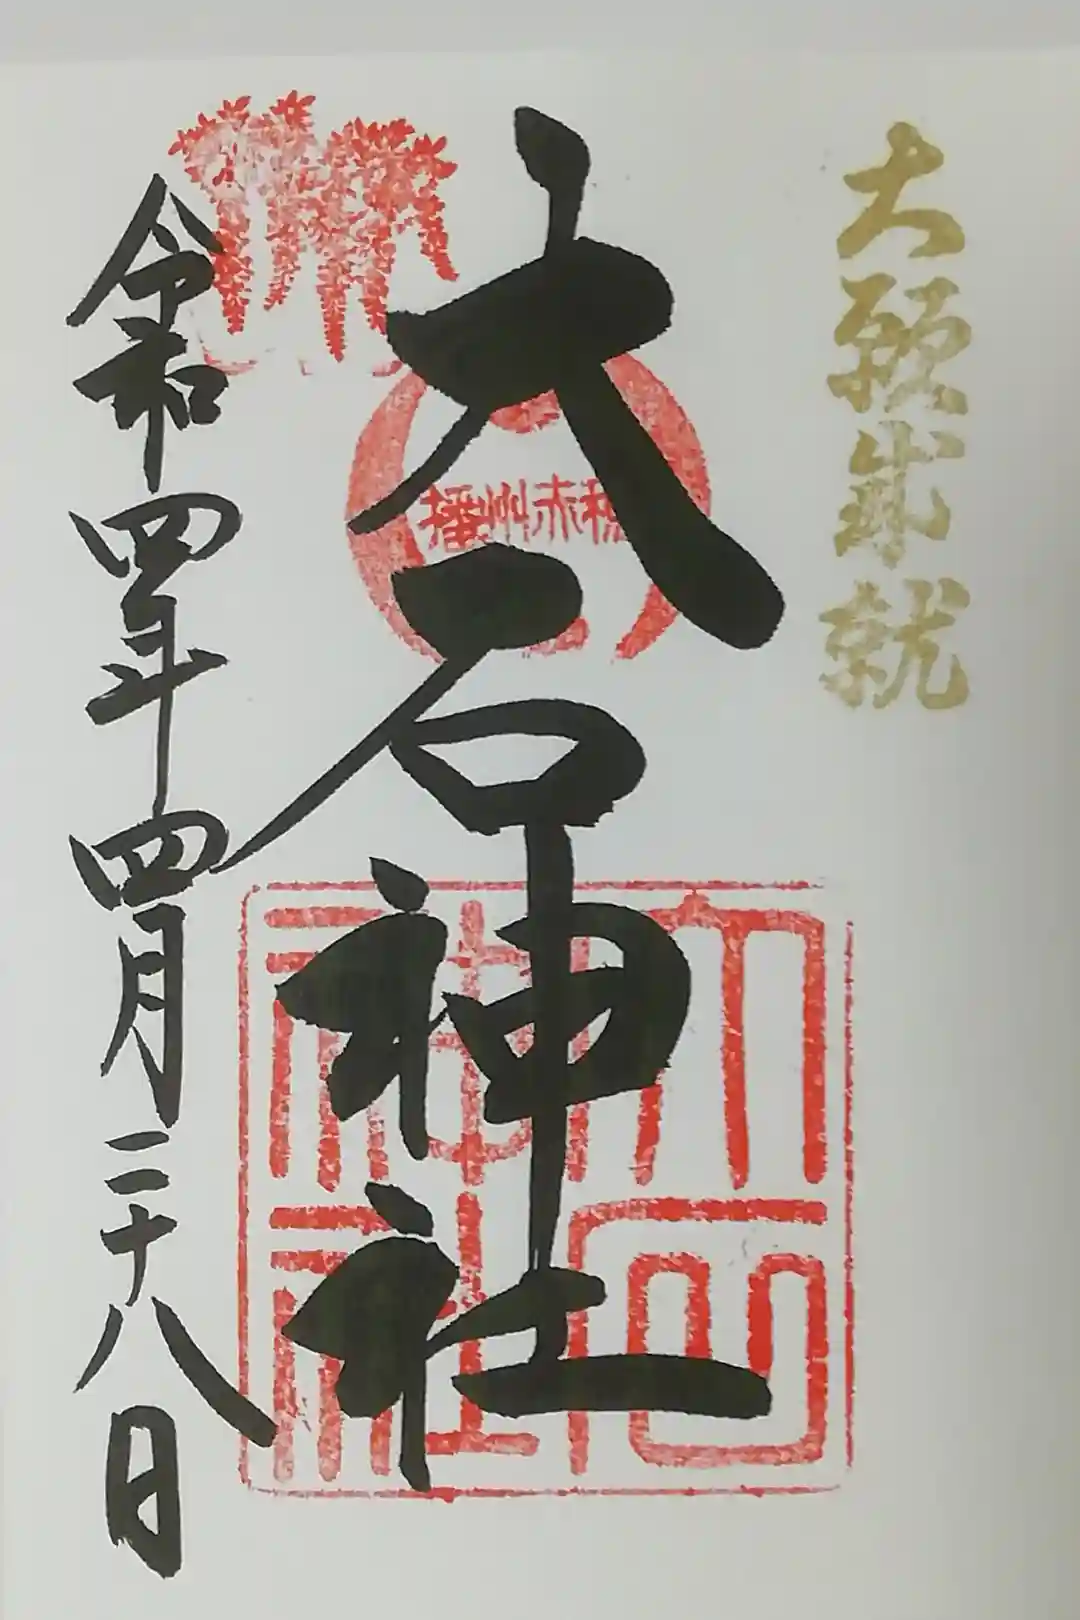 大願成就
播州赤穂
大石神社
大石神社
令和四年四月二十八日